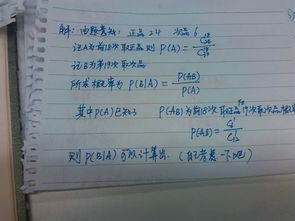 解: 由题意知: 正品 24 次品 6
记A为前18次取正品 则 P(A) =
记B为第19次次品
所求概率为 P(B|A) = P(AB) / P(A)
其中P(A)已知 P(AB)为前18次取正品 19次取次品
P(AB) =
则 P(B|A) 可以计算出. (自己考虑一下吧)